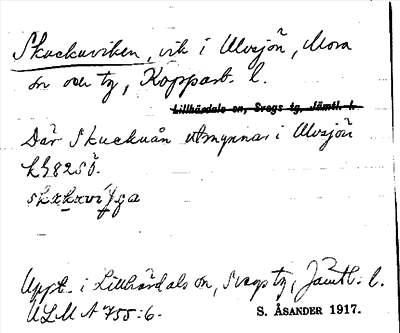 Skuckuviken, vik i Ulvsjön, Mora
sn och tg, Kopparb. l.
Lillhärdals sn, Svegs tg, Jämtl. l.
Där Skuckuån utmynnar i Ulvsjön
Uppt. i Lillhärdals sn, Svegs tg, Jämtl. l.
ULMA 755:6.
S. ÅSANDER 1917.